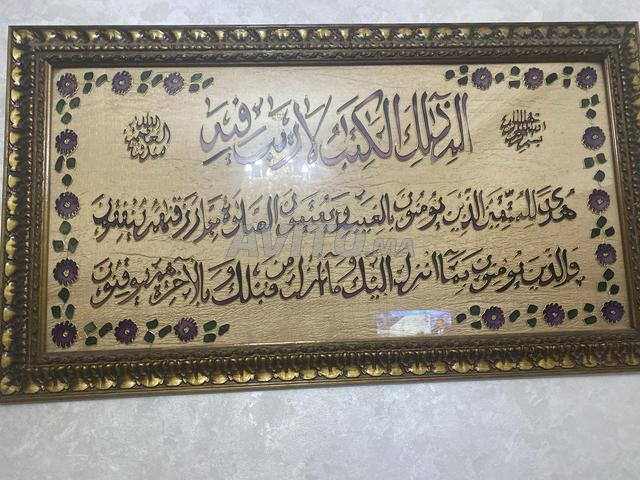 بسم الله الرحمن الرحيم
الم ذلك الكتب لا ريب فيه
صدق الله العظيم
هدى للمتقين الذين يؤمنون بالغيب ويقيمون الصلوة ومما رزقنهم ينفقون
والذين يؤمنون بما أنزل إليك وما أنزل من قبلك وبالآخرة هم يوقنون
AVITO.ma